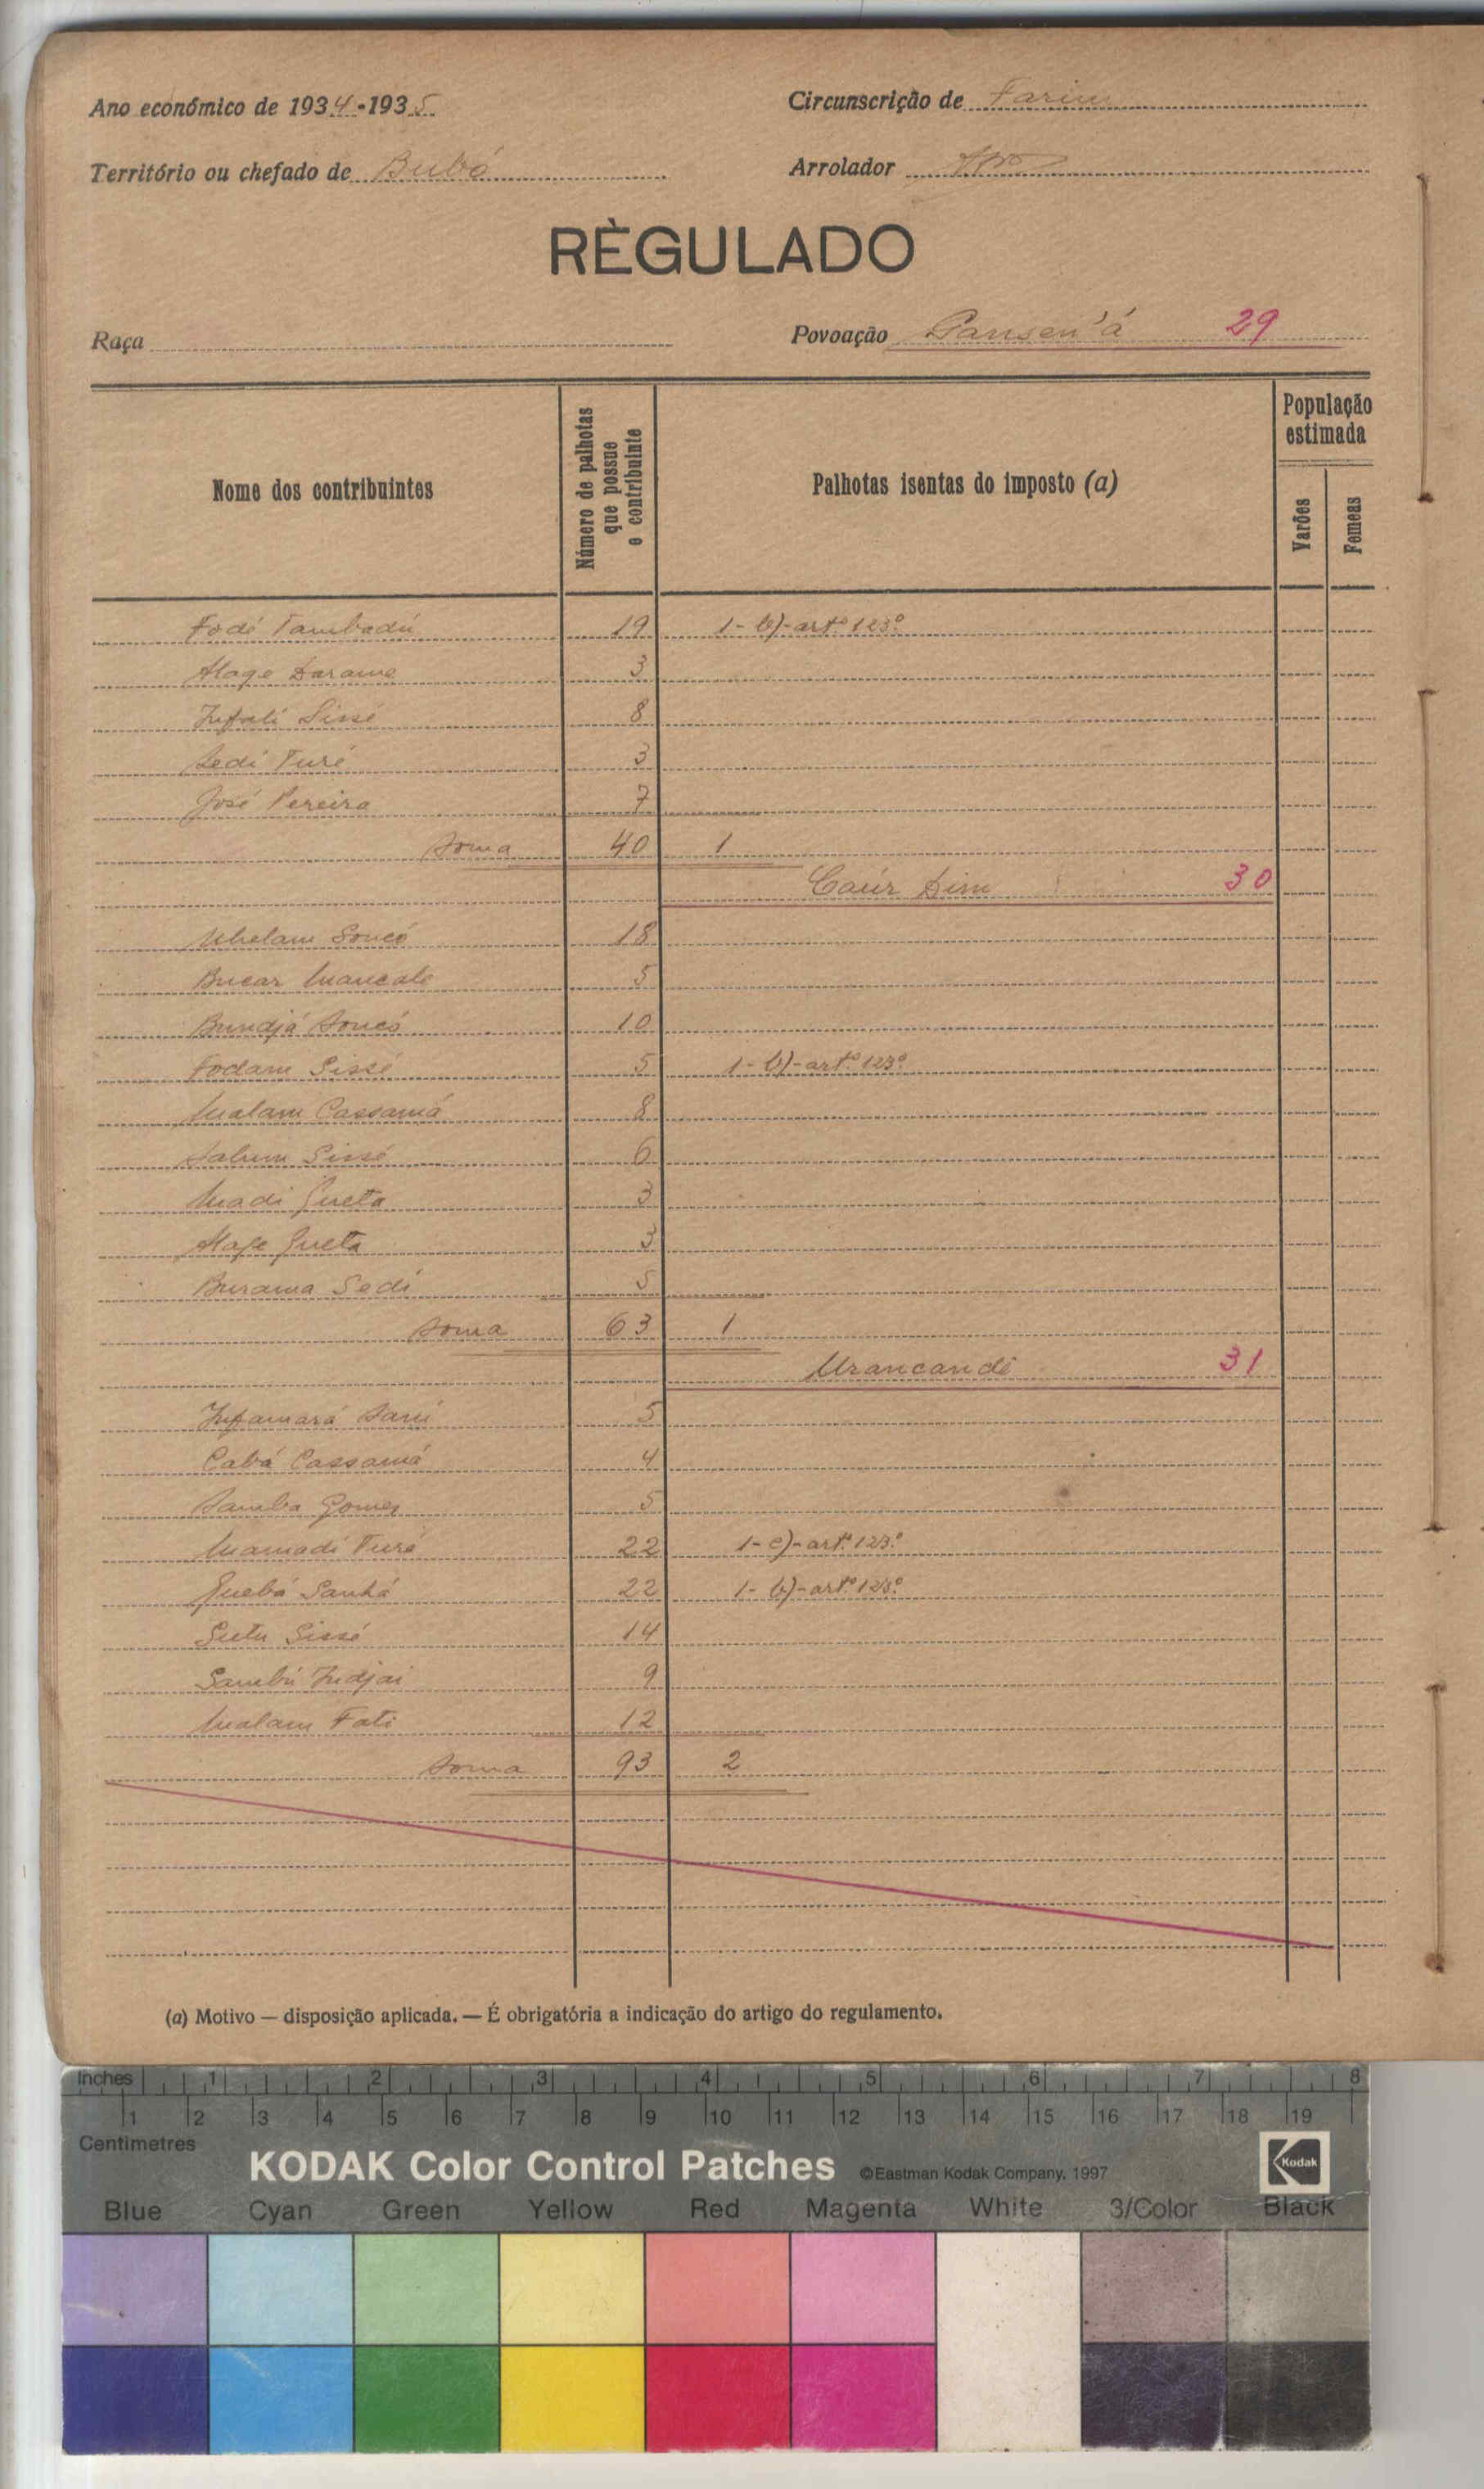 Ano económico de 1934-1935 Circunscrição de Farim
Território ou chefado de Bubó Arrolador
RÈGULADO
Raça Povoação Pansen'á 29
Nome dos contribuintes
Número de palhotas que possue o contribuinte
Palhotas isentas do imposto (a)
População estimada
Varões
Femeas
Fodé Tambadú 19 1- b)-artº 123º
Alage Darame 3
Infali Sissé 8
Sedi Turé 3
José Pereira 7
Soma 40 1
Caúr Dim 30
Soncó 18
Bucar Mancale 5
Bundjá Soncó 10
Fodam Sissé 5 1- b)-artº 123º
Malam Cassamá 8
Salum Sissé 6
Madi Queta 3
Alage Queta 3
Burama Sedi 5
Soma 63 1
Mrancandé 31
Infamará Sani 5
Cabá Cassamá 4
Samba Gomes 5
Mamadi Turé 22 1- c)-artº 123º
Quebá Sanhá 22 1- b)-artº 123º
Sutu Sissé 14
Sambú Indjai 9
Malam Fati 12
Soma 93 2
(a) Motivo — disposição aplicada. — É obrigatória a indicação do artigo do regulamento.
Inches 1 2 3 4 5 6 7 8
1 2 3 4 5 6 7 8 9 10 11 12 13 14 15 16 17 18 19
Centimetres
KODAK Color Control Patches ©Eastman Kodak Company, 1997 Kodak
Blue Cyan Green Yellow Red Magenta White 3/Color Black